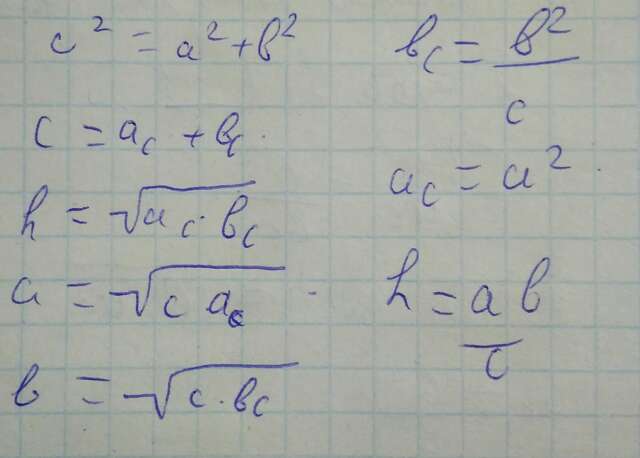 c² = a² + b²
c = a_c + b_c.
h = √(a_c · b_c)
a = √(c a_c) .
b = √(c · b_c)
b_c = b² / c
a_c = a² .
h = a b / c